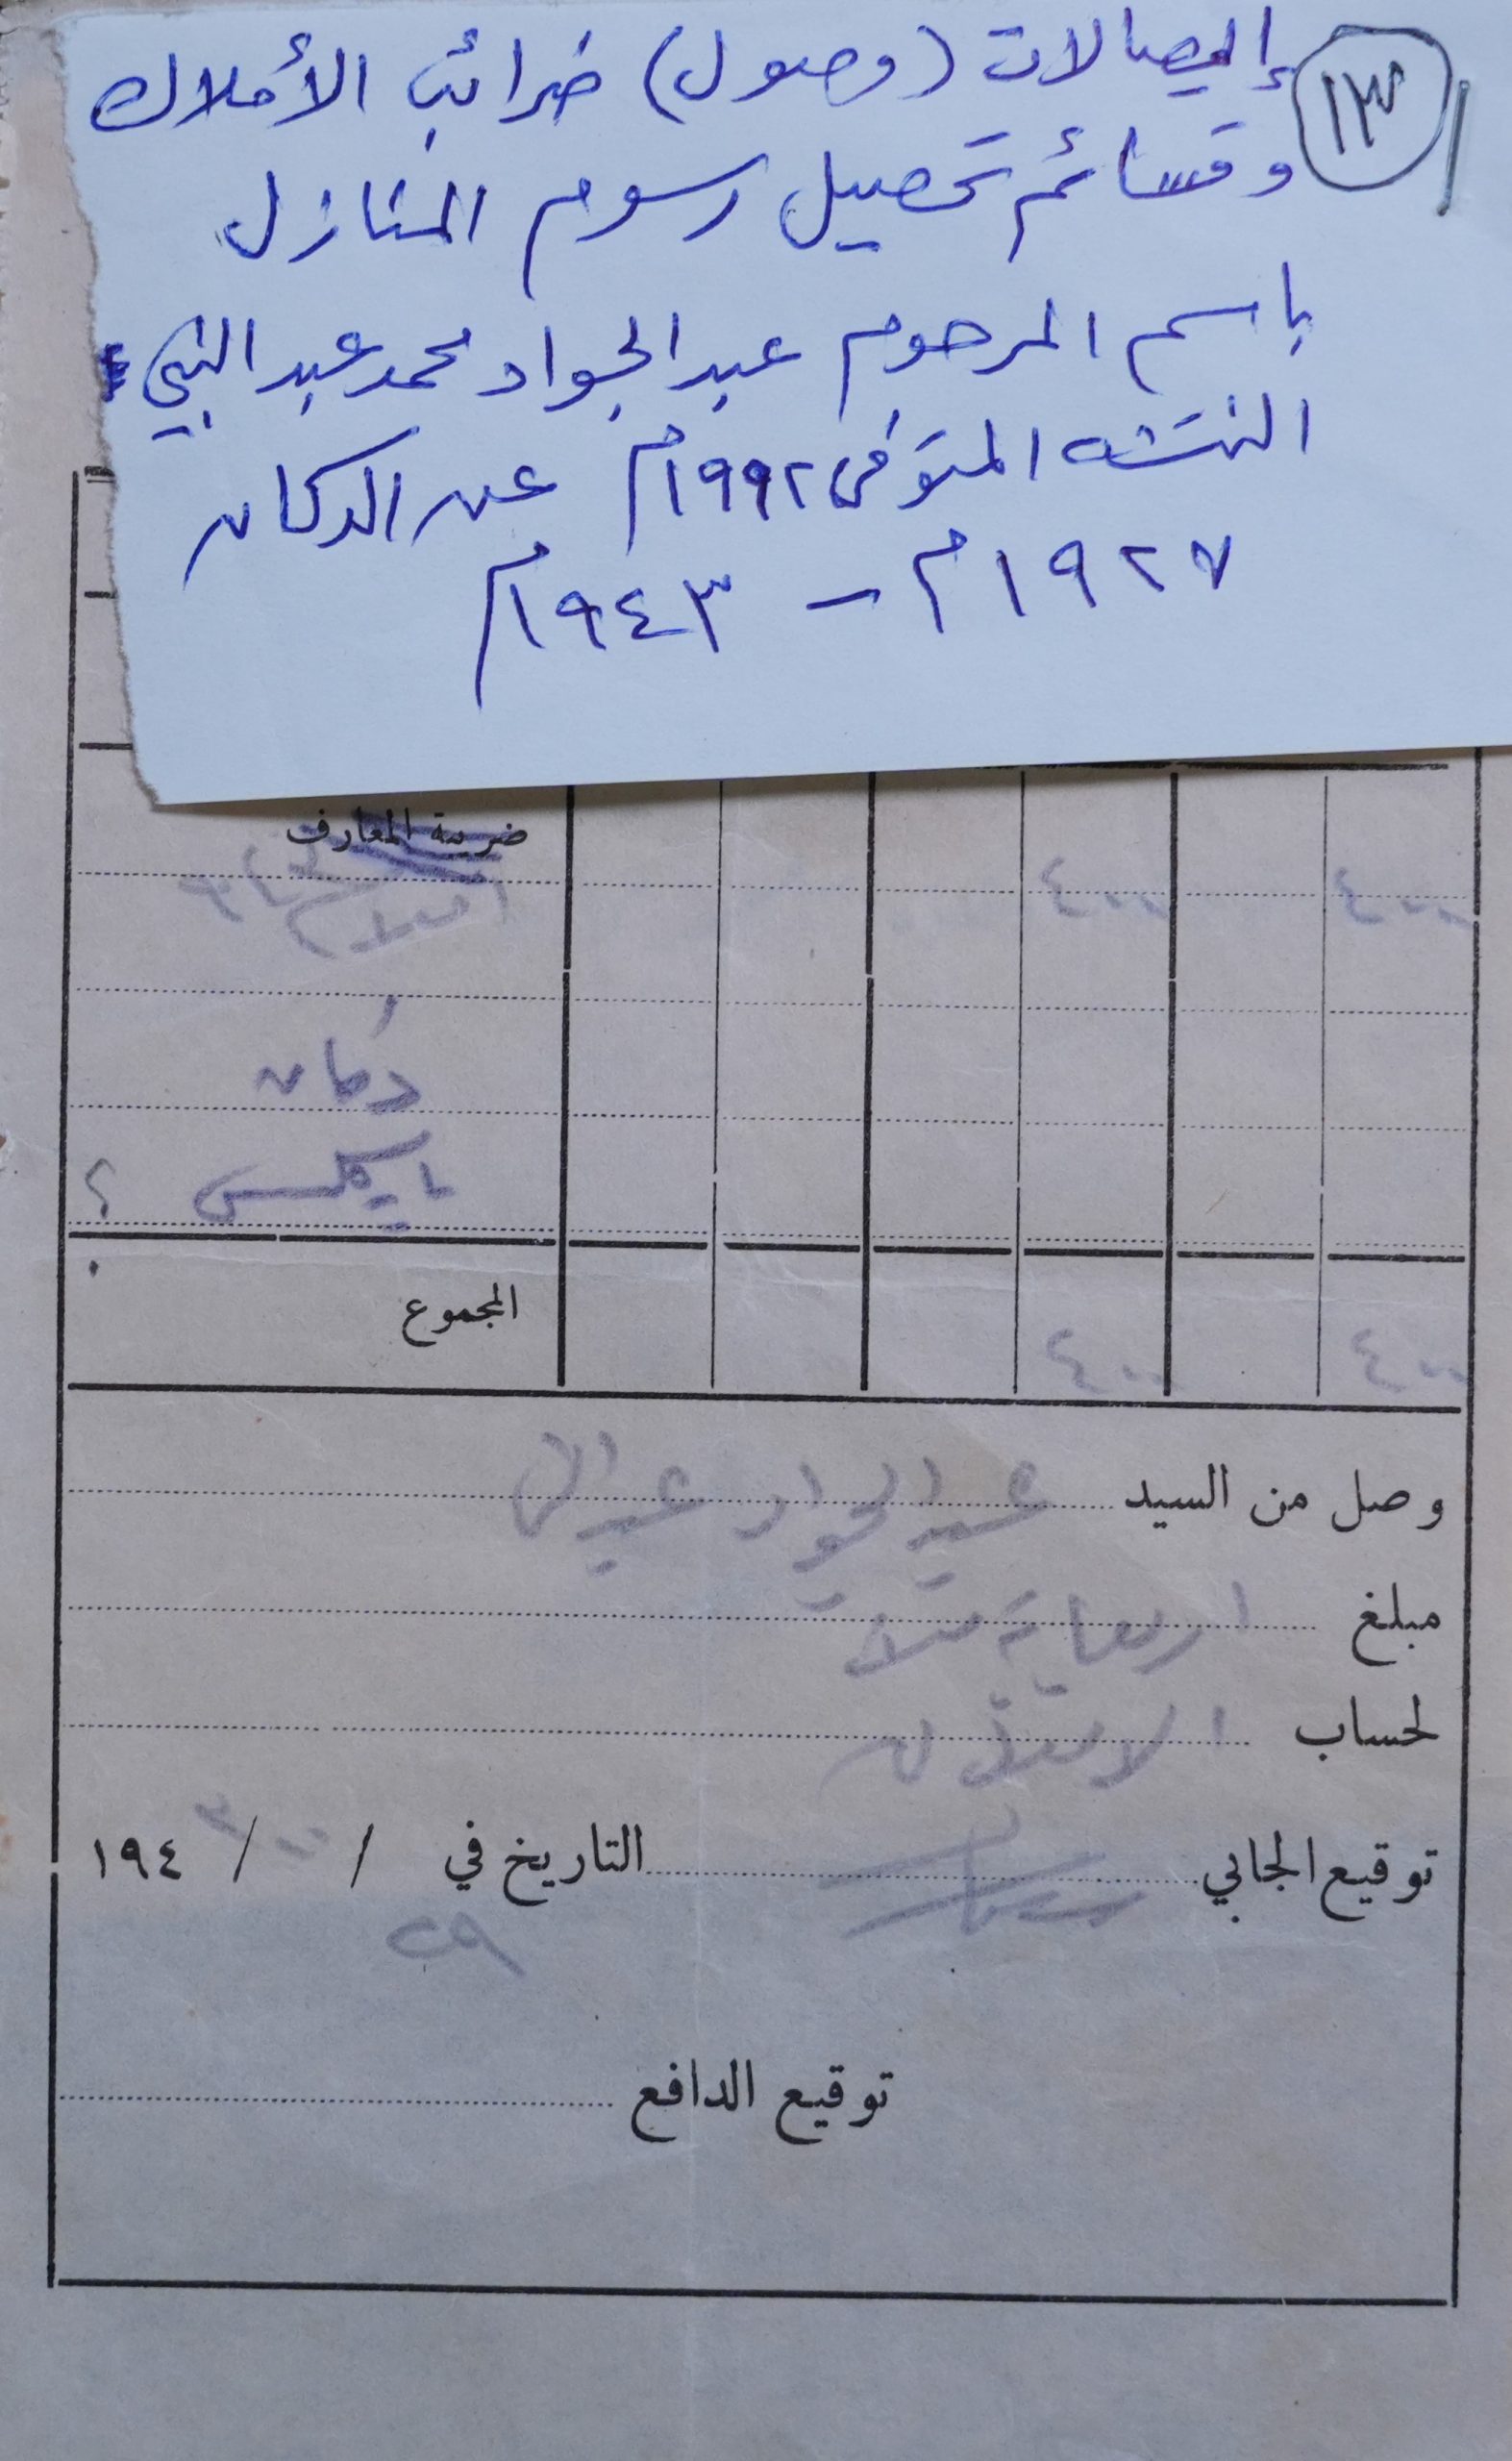 ١٣
إيصالات (وصول) ضرائب الأملاك
وقسائم تحصيل رسوم المنازل
باسم المرحوم عبد الجواد محمد عبد النبي
النتشه المتوفى ١٩٩٢م عن الدكان
١٩٢٧م - ١٩٤٣م
ضريبة المعارف
٤٠٠ ٤٠٠
دكان
؟
المجموع
٤٠٠ ٤٠٠
وصل من السيد عبد الجواد عبد
مبلغ اربعماية ملا
لحساب
توقيع الجابي التاريخ في / / ١٩٤٣
٢٩
توقيع الدافع